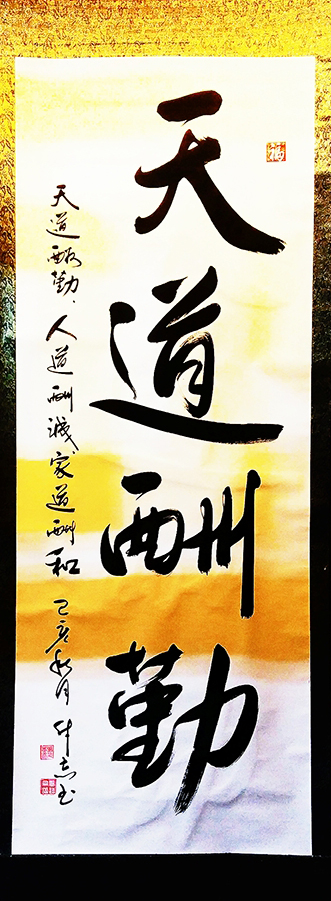 天道酬勤
天道酬勤、人道酬诚家道酬和 己亥秋月